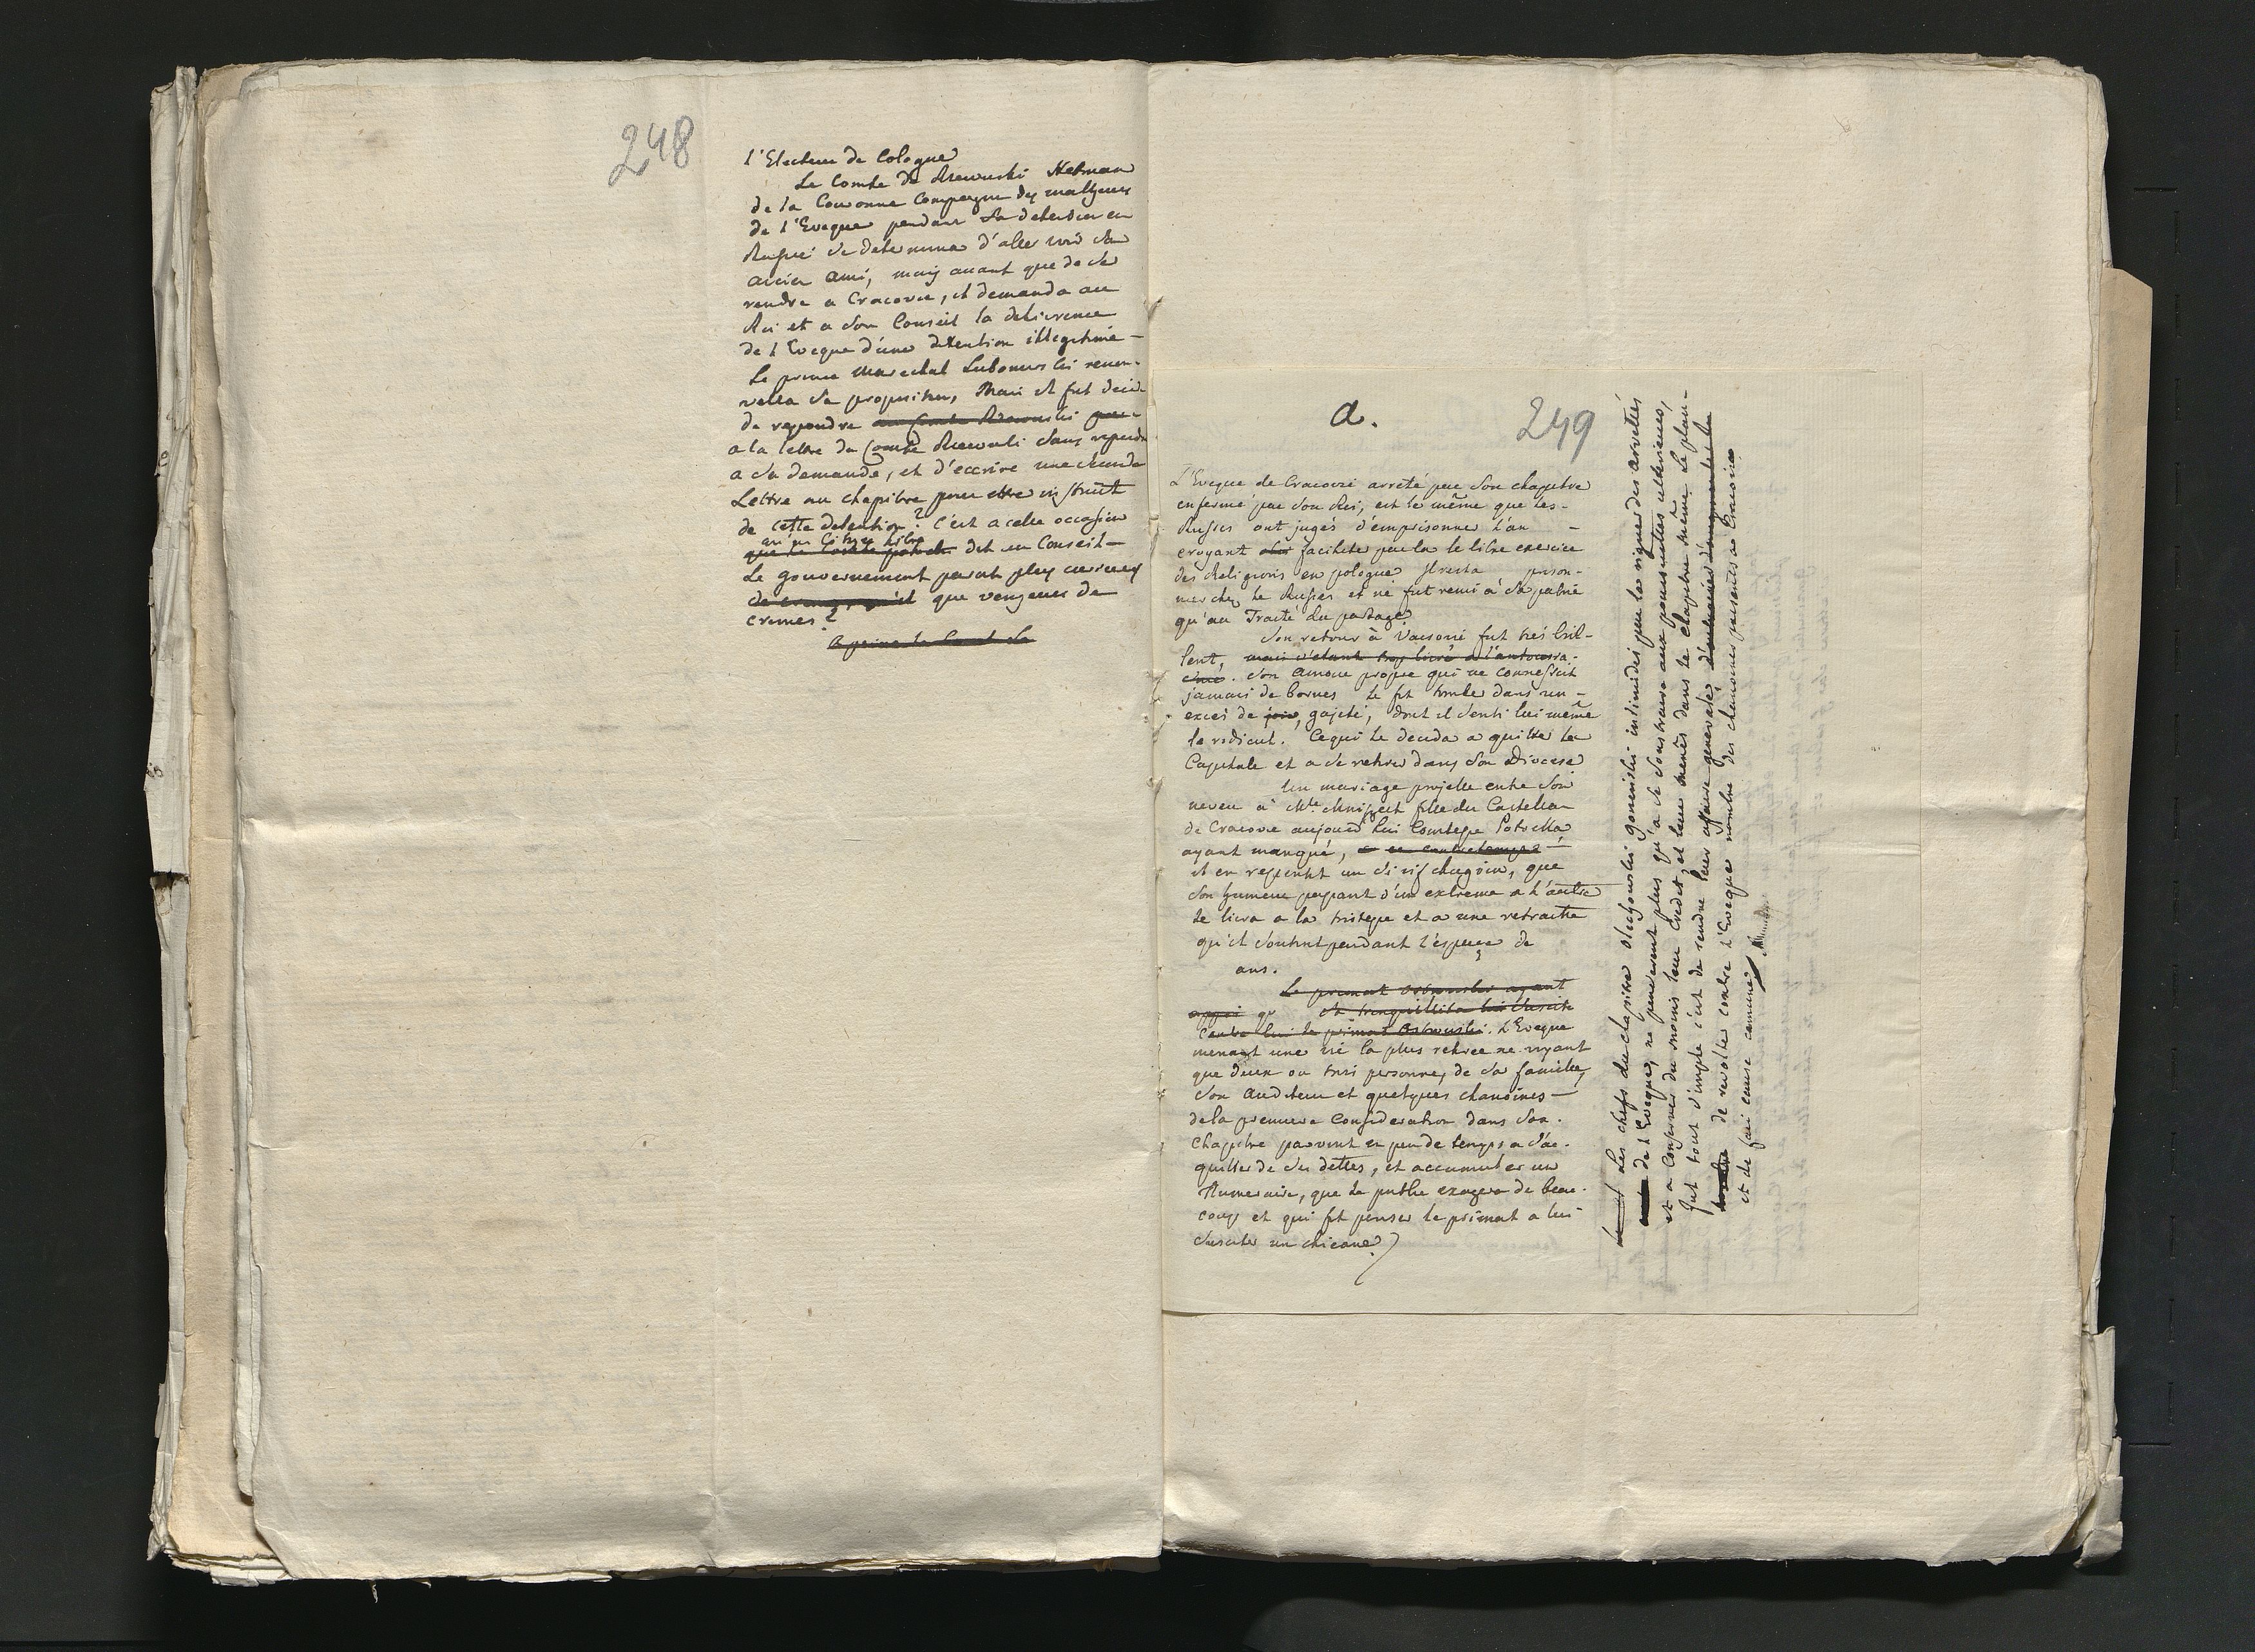 248
l'Electeur de Cologne
Le Comte de Rzewuski Hetman
de la Couronne Compagnon des malheurs
de l'Eveque pendant sa detention en
Russie se determina d'aller voir son
ancien ami, mais avant que de se
rendre a Cracovie, il demanda au
Roi et a son Conseil la delivrence
de l'Eveque d'une detention illegitime —
Le prince Marechal Lubomirski renou-
vella sa proposition, Mais il fut decidé
de repondre au Comte Rzewuski par
a la lettre du Comte Rzewuski sans repondre
a sa demande, et d'eccrire une seconde
Lettre au chapitre pour etre instruit
de cette detention? C'est a cette occasion
qu'un Citoyen libre
que le Comte dit en Conseil —
Le gouvernement parait plus curieux
que vengeur de
crimes?
a peine le
a.
249
L'Eveque de Cracovie arreté par son chapitre
enfermé par son Roi, est le même que les
Russes ont jugés d'emprisonner l'an —
croyant faciliter par la le libre exercice
des Religions en pologne Il resta prison-
nier chez le Russes et ne fut remi à sa patrie
qu'au Traité du partage.
Son retour à Varsovie fut tres bril-
lent, mais s'etant trop livré a l'
. Son amour propre qui ne connessoit
jamais de bornes le fit tomber dans un —
exces de joie, gajeté, dont il senti lui même
le ridicul. Ce qui le decida a quitter la
Capitale et a se retirer dans son Diocese
Un mariage projetté entre son
neveu a Mlle Mniszech fille du Castellan
de Cracovie aujourd'hui Comtesse Potocka
ayant manqué, ce contretemps —
il en ressentit un si vif chagrin, que
son humeur passant d'un extreme a l'autre
le livra a la tristesse et a une retraitte
qu'il soutint pendant l'espace de
ans.
Le primat Ostrowski ayant
appri qu sa tranquillité lui suscita
contre lui le primat Ostrowski. L'Eveque
menant une vie la plus retiree ne voyant
que deux ou trois personnes de sa famille,
son Auditeur et quelques chanoines —
de la premiere Consideration dans son
Chapitre parvint en peu de temps a s'ac-
quitter de ses dettes, et accumuler un
Numeraire, que le public exagera de beau-
coup et qui fit penser le primat a lui
susciter un chicane)
Les chefs du chapitre Olechowski gorzenski intimidés par la rigueur des arretés
de l'Eveque, ne penserent plus qu'a se soustraire aux poursuites ulterieures,
et a conserver du moins leur Credit, et leurs menés dans le Chapitre même Le plan —
fut tout simple c'est de rendre leur affaire generale
de revolte contre l'Eveque nombre des chanoines presents a Cracovie
et de faire cause commune